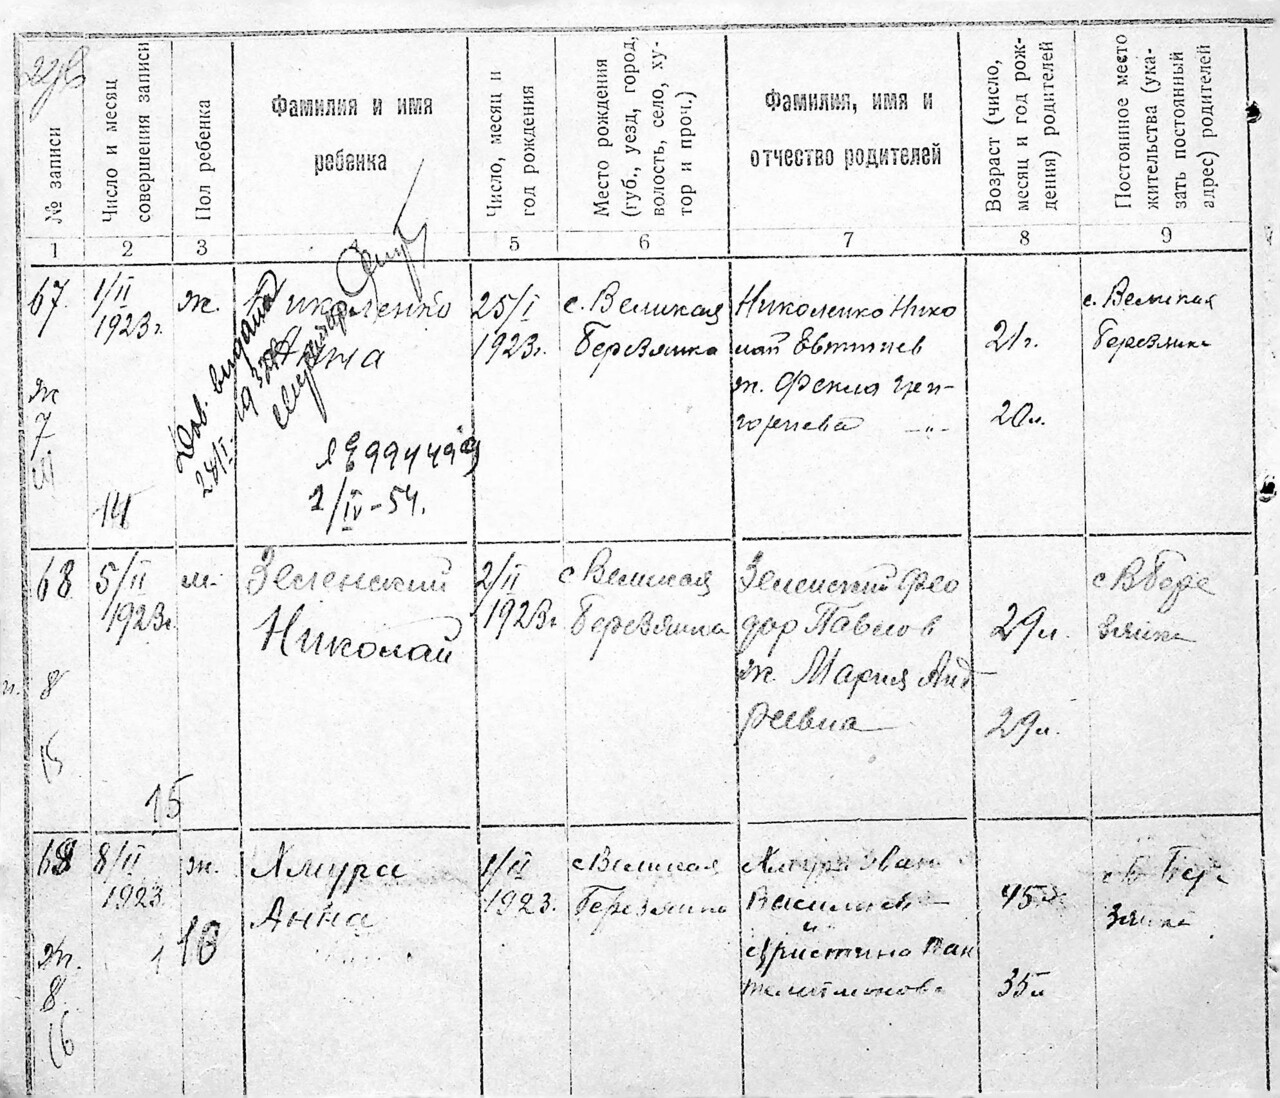 № записи
Число и месяц
совершения записи
Пол ребенка
Фамилия и имя
ребенка
Число, месяц и
год рождения
Место рождения
(губ., уезд, город,
волость, село, ху-
тор и проч.)
Фамилия, имя и
отчество родителей
Возраст (число,
месяц и год рож-
дения) родителей
Постоянное место
жительства (ука-
зать постоянный
адрес) родителей
1 2 3 5 6 7 8 9
67. 1/II
1923г.
ж.
Николенко
Нина
25/I
1923г.
с. Великая
Березянка
Николенко Нико
лай Евтиев
ж. Фекла
горьева -„-
21г.
20л.
с. Великая
Березянка
ж
7
14
Дов. видана
28/I
ЯЕ 994499
2/IV-54.
68 5/II
1923г.
м.
Зеленский
Николай
2/II
1923г.
с Великая
Березянка
Зеленский Фео
дор Павлов
ж. Мария Анд
реевна
29л.
29л.
с В Бере
зянка
8
15
15
5/
8/II
1923.
ж.
Хмура
Анна
1/II
1923.
с Великая
Березянка
Хмура Иван
Васильев
Христина Пан
телеймонова
45
35л
с В Бере
зянка
ж.
8
16
16